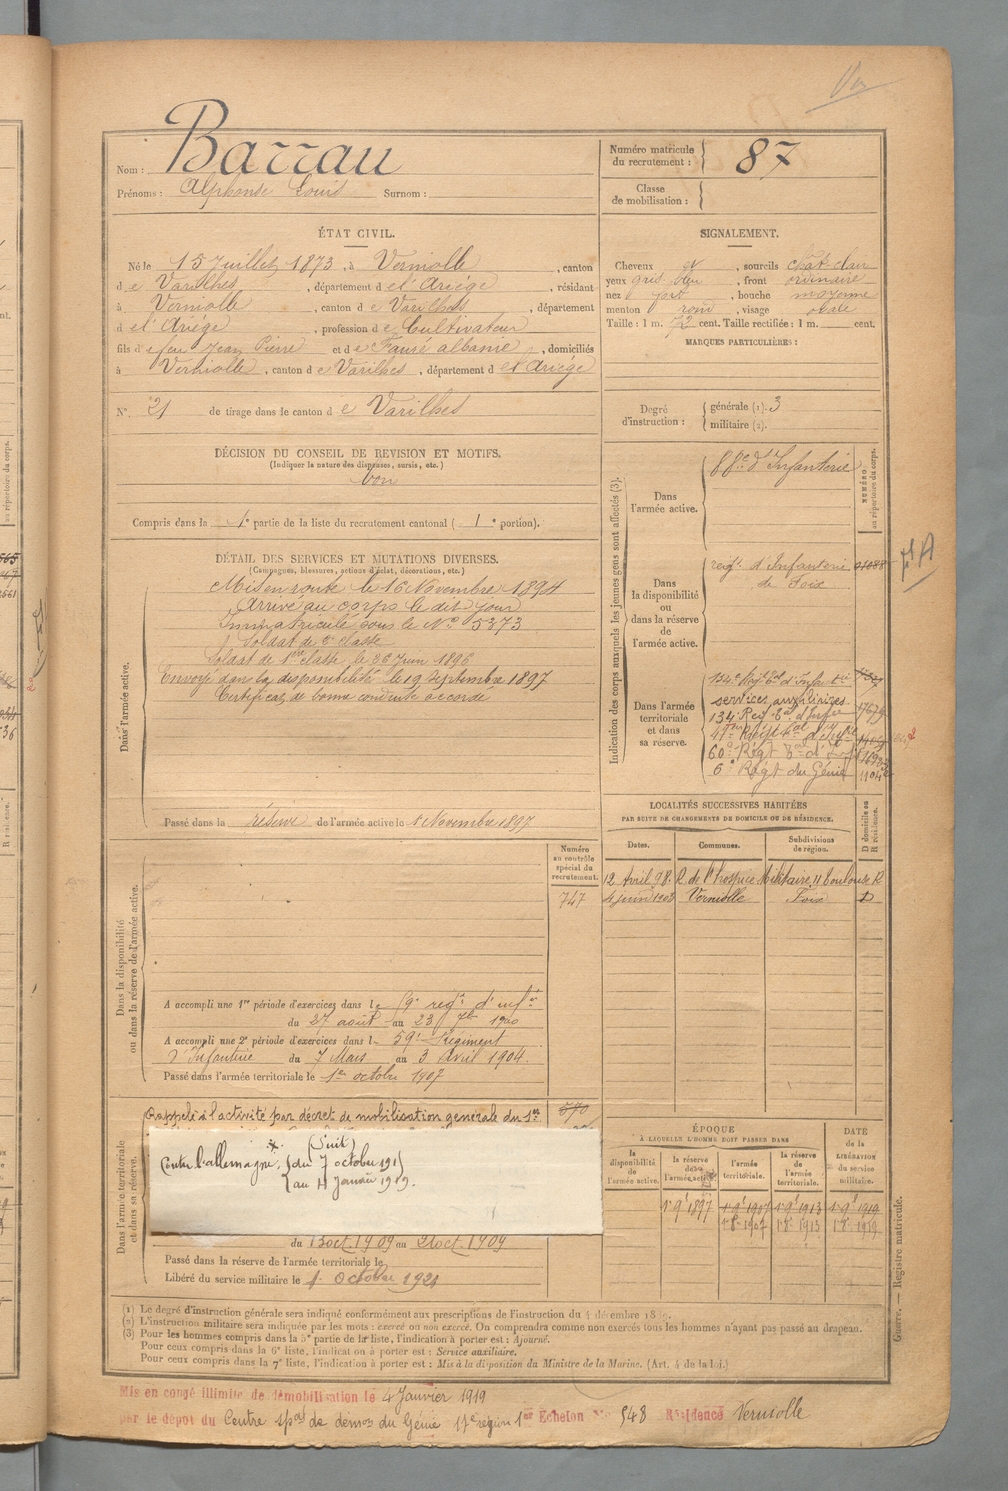 Nom : Barrau
Prénoms : Alphonse Louis Surnom :
Numéro matricule du recrutement : 87
Classe de mobilisation :
ÉTAT CIVIL.
Né le 15 Juillet 1873, à Verniolle, canton
de Varilhes, département de l'Ariége, résidant
à Verniolle, canton de Varilhes, département
de l'Ariége, profession de Cultivateur
fils de feu Jean Pierre et de Fauré albanie, domiciliés
à Verniolle, canton de Varilhes, département de l'Ariége
N° 21 de tirage dans le canton de Varilhes
SIGNALEMENT.
Cheveux et, sourcils chât clair
yeux gris bleu, front ordinaire
nez petit, bouche moyenne
menton rond, visage ovale
Taille : 1 m. 72 cent. Taille rectifiée : 1 m. cent.
MARQUES PARTICULIÈRES :
Degré d'instruction : générale (1). 3
militaire (2).
DÉCISION DU CONSEIL DE REVISION ET MOTIFS.
(Indiquer la nature des dispenses, sursis, etc.)
bon
Compris dans la 1e partie de la liste du recrutement cantonal ( 1e portion).
DÉTAIL DES SERVICES ET MUTATIONS DIVERSES.
(Campagnes, blessures, actions d'éclat, décorations, etc.)
Dans l'armée active.
Mis en route le 16 Novembre 1894
Arrivé au corps le dit jour
Immatriculé sous le No 5373
Soldat de 2e classe
Soldat de 1re classe, le 26 Juin 1896
Envoyé dans la disponibilité le 19 Septembre 1897
Certificat de bonne conduite accordé
Passé dans la réserve de l'armée active le 1 Novembre 1897
Indication des corps auxquels les jeunes gens sont affectés (3).
NUMÉRO au répertoire du corps.
Dans l'armée active.
d'Infanterie
Dans la disponibilité ou dans la réserve de l'armée active.
regt. d'Infanterie
de Foix
Dans l'armée territoriale et dans sa réserve.
134e Regt Tal d'Infanterie
services auxiliaires.
134 Reg Tal d'Infie
60e Régt Tal d'Inf
6e Régt du Génie 1104
LOCALITÉS SUCCESSIVES HABITÉES
PAR SUITE DE CHANGEMENTS DE DOMICILE OU DE RÉSIDENCE.
Dates. Communes. Subdivisions de région. D domicile ou R résidence.
12 Avril 98. R de l'hospice Militaire, 11 Toulouse R
4 juin 1903 Verniolle Foix D
Dans la disponibilité ou dans la réserve de l'armée active.
Numéro au contrôle spécial du recrutement.
747
A accompli une 1re période d'exercices dans le regt. d'infie
du 27 août au 23 7bre 1900
A accompli une 2e période d'exercices dans le 59e Régiment
d'Infanterie du 7 Mars au 3 Avril 1904.
Passé dans l'armée territoriale le 1er octobre 1907
Dans l'armée territoriale et dans sa réserve.
Rappelé à l'activité par décret de mobilisation générale du 1er
570
(Suit)
Contre l'allemagne, du 7 octobre 191
au 4 Janvier 1919.
du 13 oct. 1909 au 21 oct. 1909
Passé dans la réserve de l'armée territoriale le
Libéré du service militaire le 1 octobre 1921
ÉPOQUE
A LAQUELLE L'HOMME DOIT PASSER DANS
DATE de la LIBÉRATION du service militaire.
la disponibilité de l'armée active. la réserve de l'armée active. l'armée territoriale. la réserve de l'armée territoriale.
1r 9e 1897 1r 9e 1907 1r 9e 1913 1r 9e 1919
1r 8e 1907 1r 8e 1913 1r 8e 1919
(1) Le degré d'instruction générale sera indiqué conformément aux prescriptions de l'instruction du 4 décembre 18
(2) L'instruction militaire sera indiquée par les mots : exercé ou non exercé. On comprendra comme non exercés tous les hommes n'ayant pas passé au drapeau.
(3) Pour les hommes compris dans la 5e partie de la liste, l'indication à porter est : Ajourné.
Pour ceux compris dans la 6e liste, l'indication à porter est : Service auxiliaire.
Pour ceux compris dans la 7e liste, l'indication à porter est : Mis à la disposition du Ministre de la Marine. (Art. 4 de la loi.)
Guerre. — Registre matricule.
Mis en congé illimité de démobilisation le 4 Janvier 1919
par le dépôt du Centre spal de démon du Génie 17e région 1er Echelon No 548 Résidence Verniolle